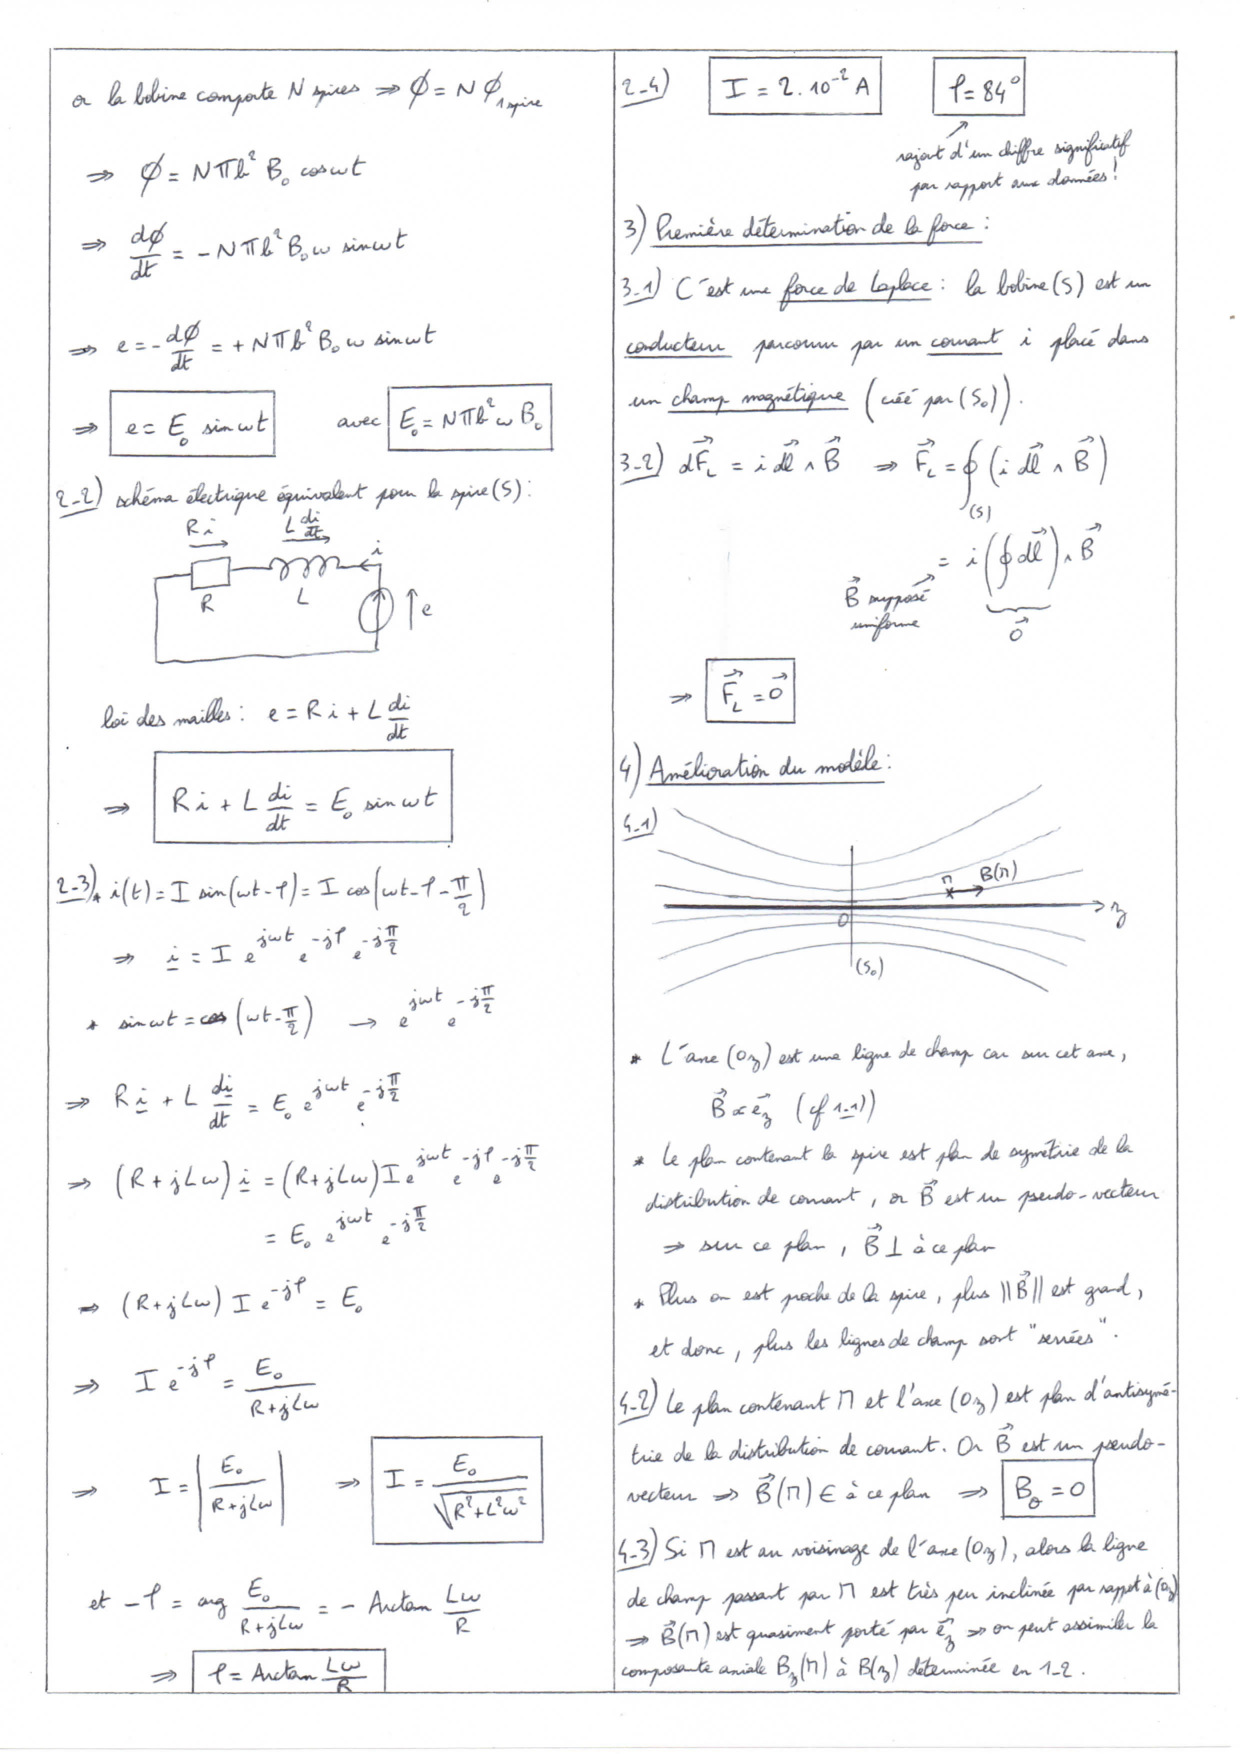 or la bobine comporte N spires ⇒ ϕ = N ϕ₁ spire
⇒ ϕ = Nπb² B₀ cos ωt
⇒ dϕ/dt = - Nπb² B₀ ω sin ωt
⇒ e = - dϕ/dt = + Nπb² B₀ ω sin ωt
⇒ e = E₀ sin ωt avec E₀ = Nπb² ω B₀
2-2) schéma électrique équivalent pour la spire (S) :
Ri L di/dt i
R L e
loi des mailles : e = Ri + L di/dt
⇒ Ri + L di/dt = E₀ sin ωt
2-3) * i(t) = I sin(ωt - φ) = I cos(ωt - φ - π/2)
⇒ i = I e^{jωt} e^{-jφ} e^{-jπ/2}
* sin ωt = cos (ωt - π/2) → e^{jωt} e^{-jπ/2}
⇒ R i + L di/dt = E₀ e^{jωt} e^{-jπ/2}
⇒ (R + jLω) i = (R + jLω) I e^{jωt} e^{-jφ} e^{-jπ/2}
= E₀ e^{jωt} e^{-jπ/2}
⇒ (R + jLω) I e^{-jφ} = E₀
⇒ I e^{-jφ} = E₀/(R + jLω)
⇒ I = |E₀/(R + jLω)| ⇒ I = E₀/√(R² + L²ω²)
et - φ = arg E₀/(R + jLω) = - Arctan Lω/R
⇒ φ = Arctan Lω/R
2-4) I = 2.10⁻² A φ = 84°
rajout d'un chiffre significatif
par rapport aux données !
3) Première détermination de la force :
3-1) C'est une force de Laplace : la bobine (S) est un
conducteur parcouru par un courant i placé dans
un champ magnétique (créé par (S₀)).
3-2) dF⃗_L = i dl⃗ ∧ B⃗ ⇒ F⃗_L = ∮_(S) (i dl⃗ ∧ B⃗)
= i (∮ dl⃗) ∧ B⃗
B⃗ supposé
uniforme
0⃗
⇒ F⃗_L = 0⃗
4) Amélioration du modèle :
4-1)
M B(M)
O z
(S₀)
* L'axe (Oz) est une ligne de champ car sur cet axe,
B⃗ ∝ e⃗_z (cf 1-1))
* Le plan contenant la spire est plan de symétrie de la
distribution de courant, or B⃗ est un pseudo-vecteur
⇒ sur ce plan, B⃗ ⊥ à ce plan
* Plus on est proche de la spire, plus ||B⃗|| est grand,
et donc, plus les lignes de champ sont "serrées".
4-2) Le plan contenant M et l'axe (Oz) est plan d'antisymé-
trie de la distribution de courant. Or B⃗ est un pseudo-
vecteur ⇒ B⃗(M) ∈ à ce plan ⇒ B_θ = 0
4-3) Si M est au voisinage de l'axe (Oz), alors la ligne
de champ passant par M est très peu inclinée par rappot à (Oz)
⇒ B⃗(M) est quasiment porté par e⃗_z ⇒ on peut assimiler la
composante axiale B_z(M) à B(z) déterminée en 1-2.